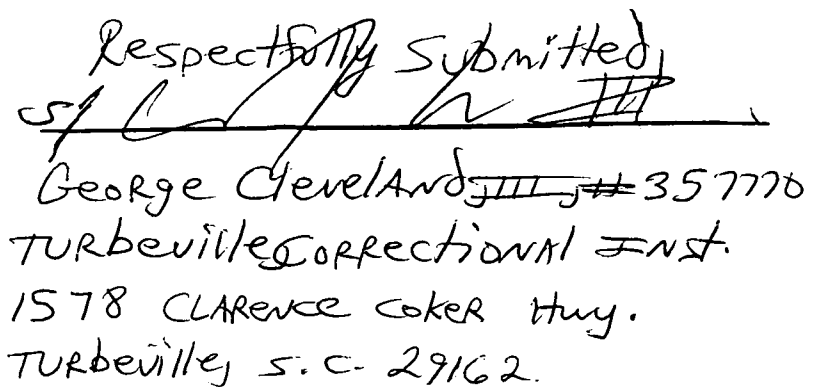 Respectfully Submitted,
S/
George Cleveland, III, #357770
Turbeville Correctional Inst.
1578 Clarence Coker Hwy.
Turbeville, S.C. 29162.